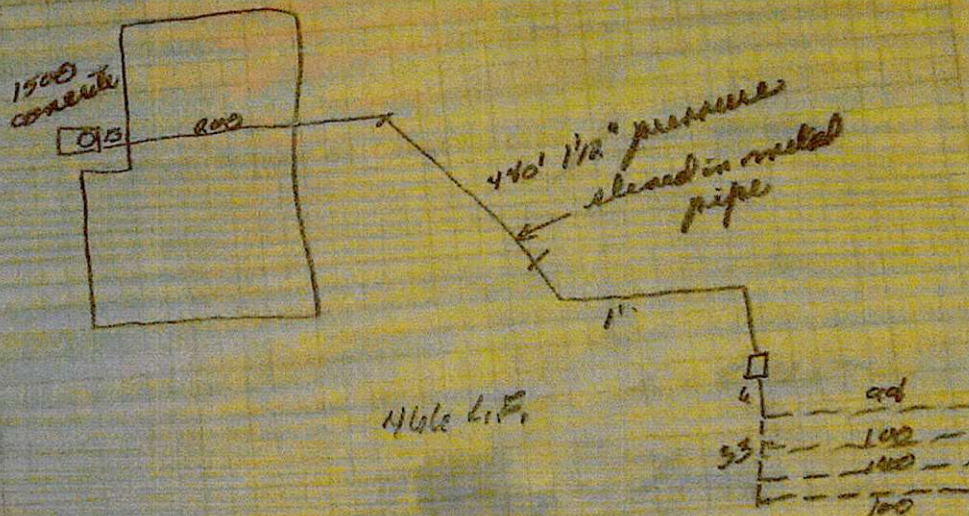 1500
concrete
15
200
1 1/2" pressure
sleeved in metal
pipe
1'
L.F.
6
98
33
100
100
100